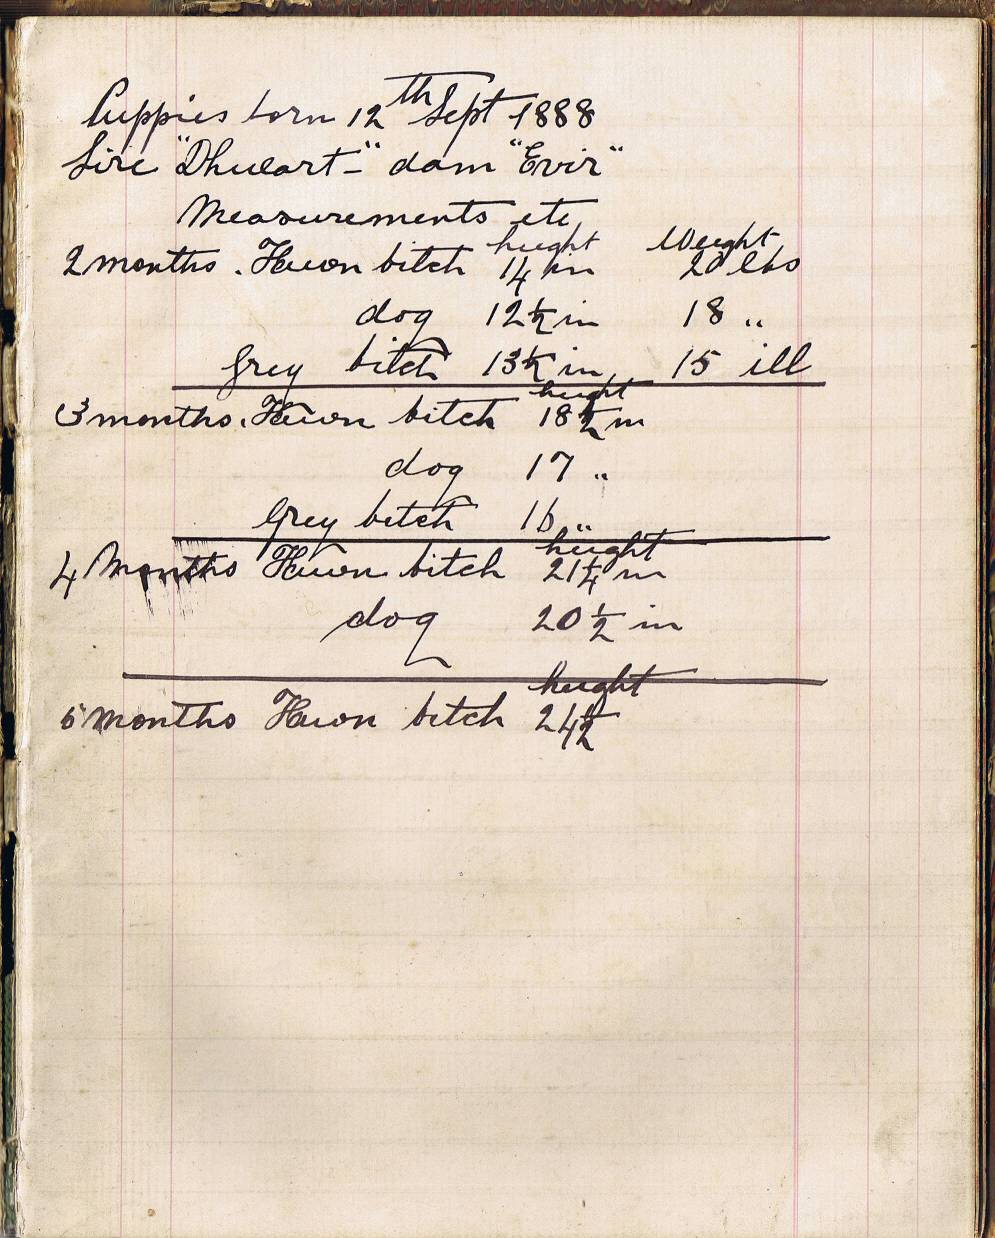 Puppies born 12th Sept 1888
Sire "Dhulart-" dam "Evir"
Measurements etc
height Weight
2 months. Fawn bitch 14 in 20 lbs
dog 12½ in 18 "
Grey bitch 13½ in 15 ill
height
3 months. Fawn bitch 18½ in
dog 17 "
Grey bitch 16 "
height
4 Months Fawn bitch 21¼ in
dog 20½ in
height
5 months Fawn bitch 24½